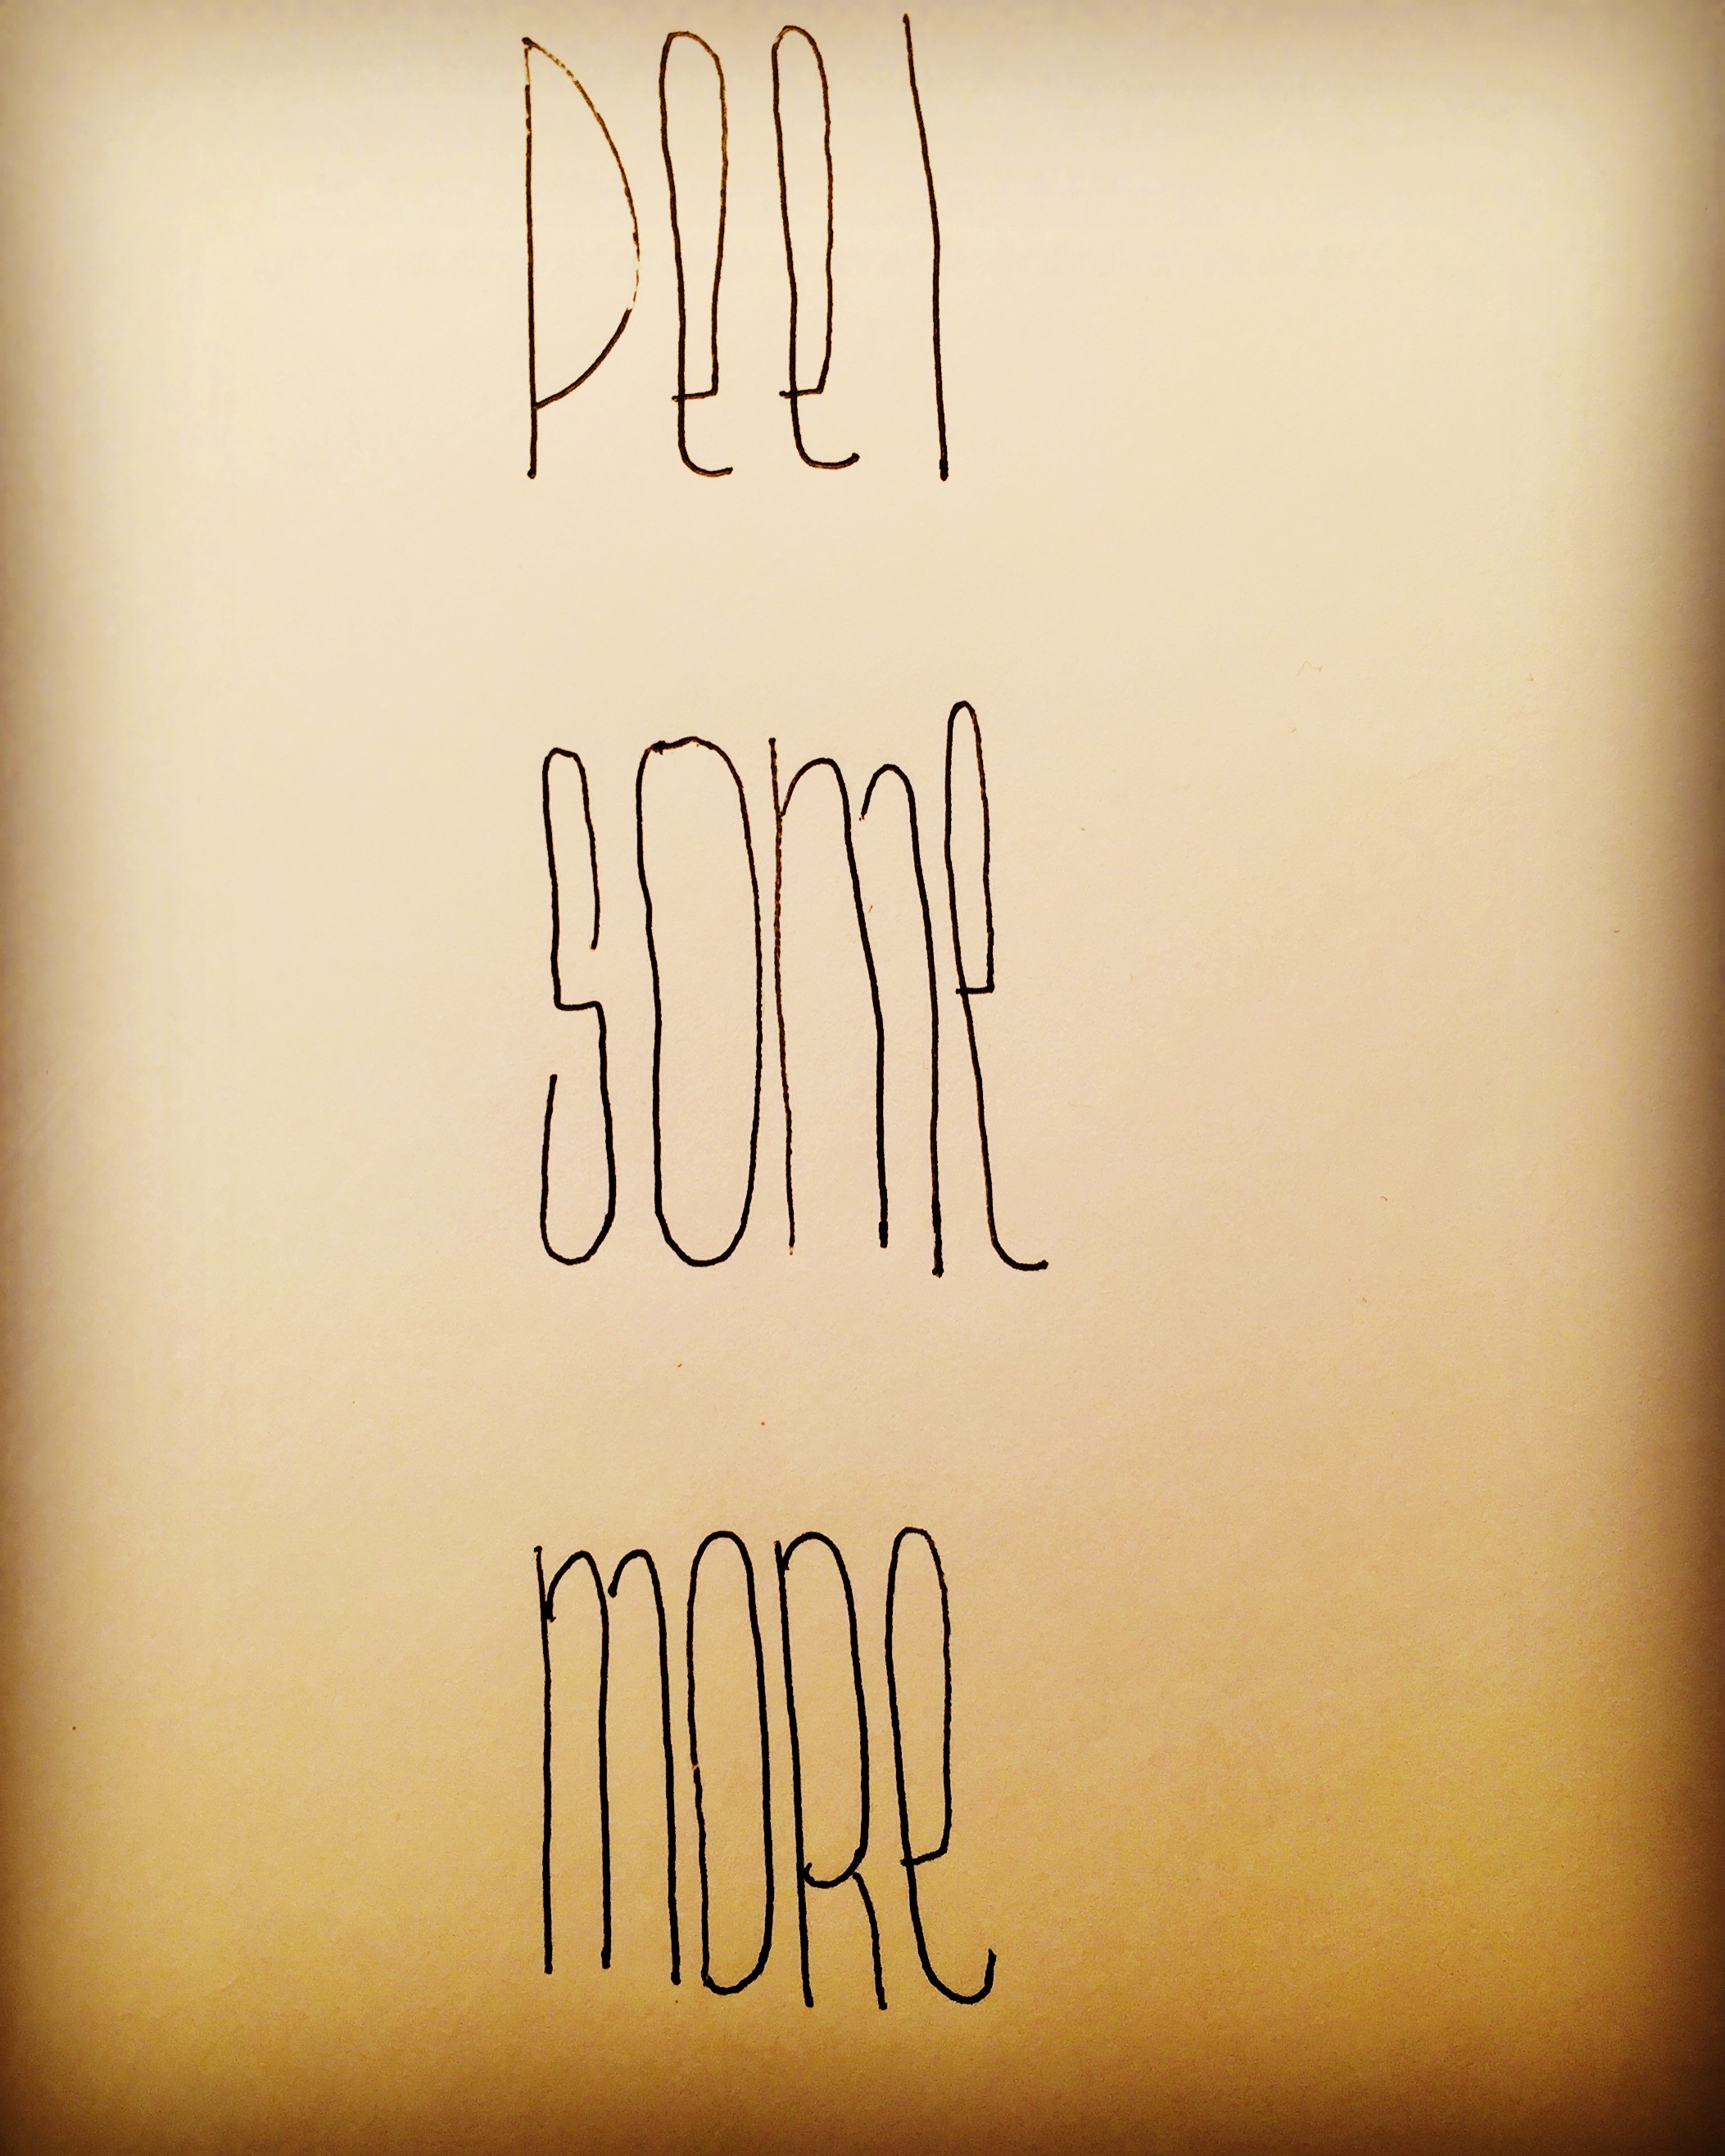 peel
some
moRe